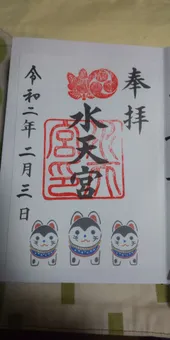 奉拝
水天宮
令和二年二月三日